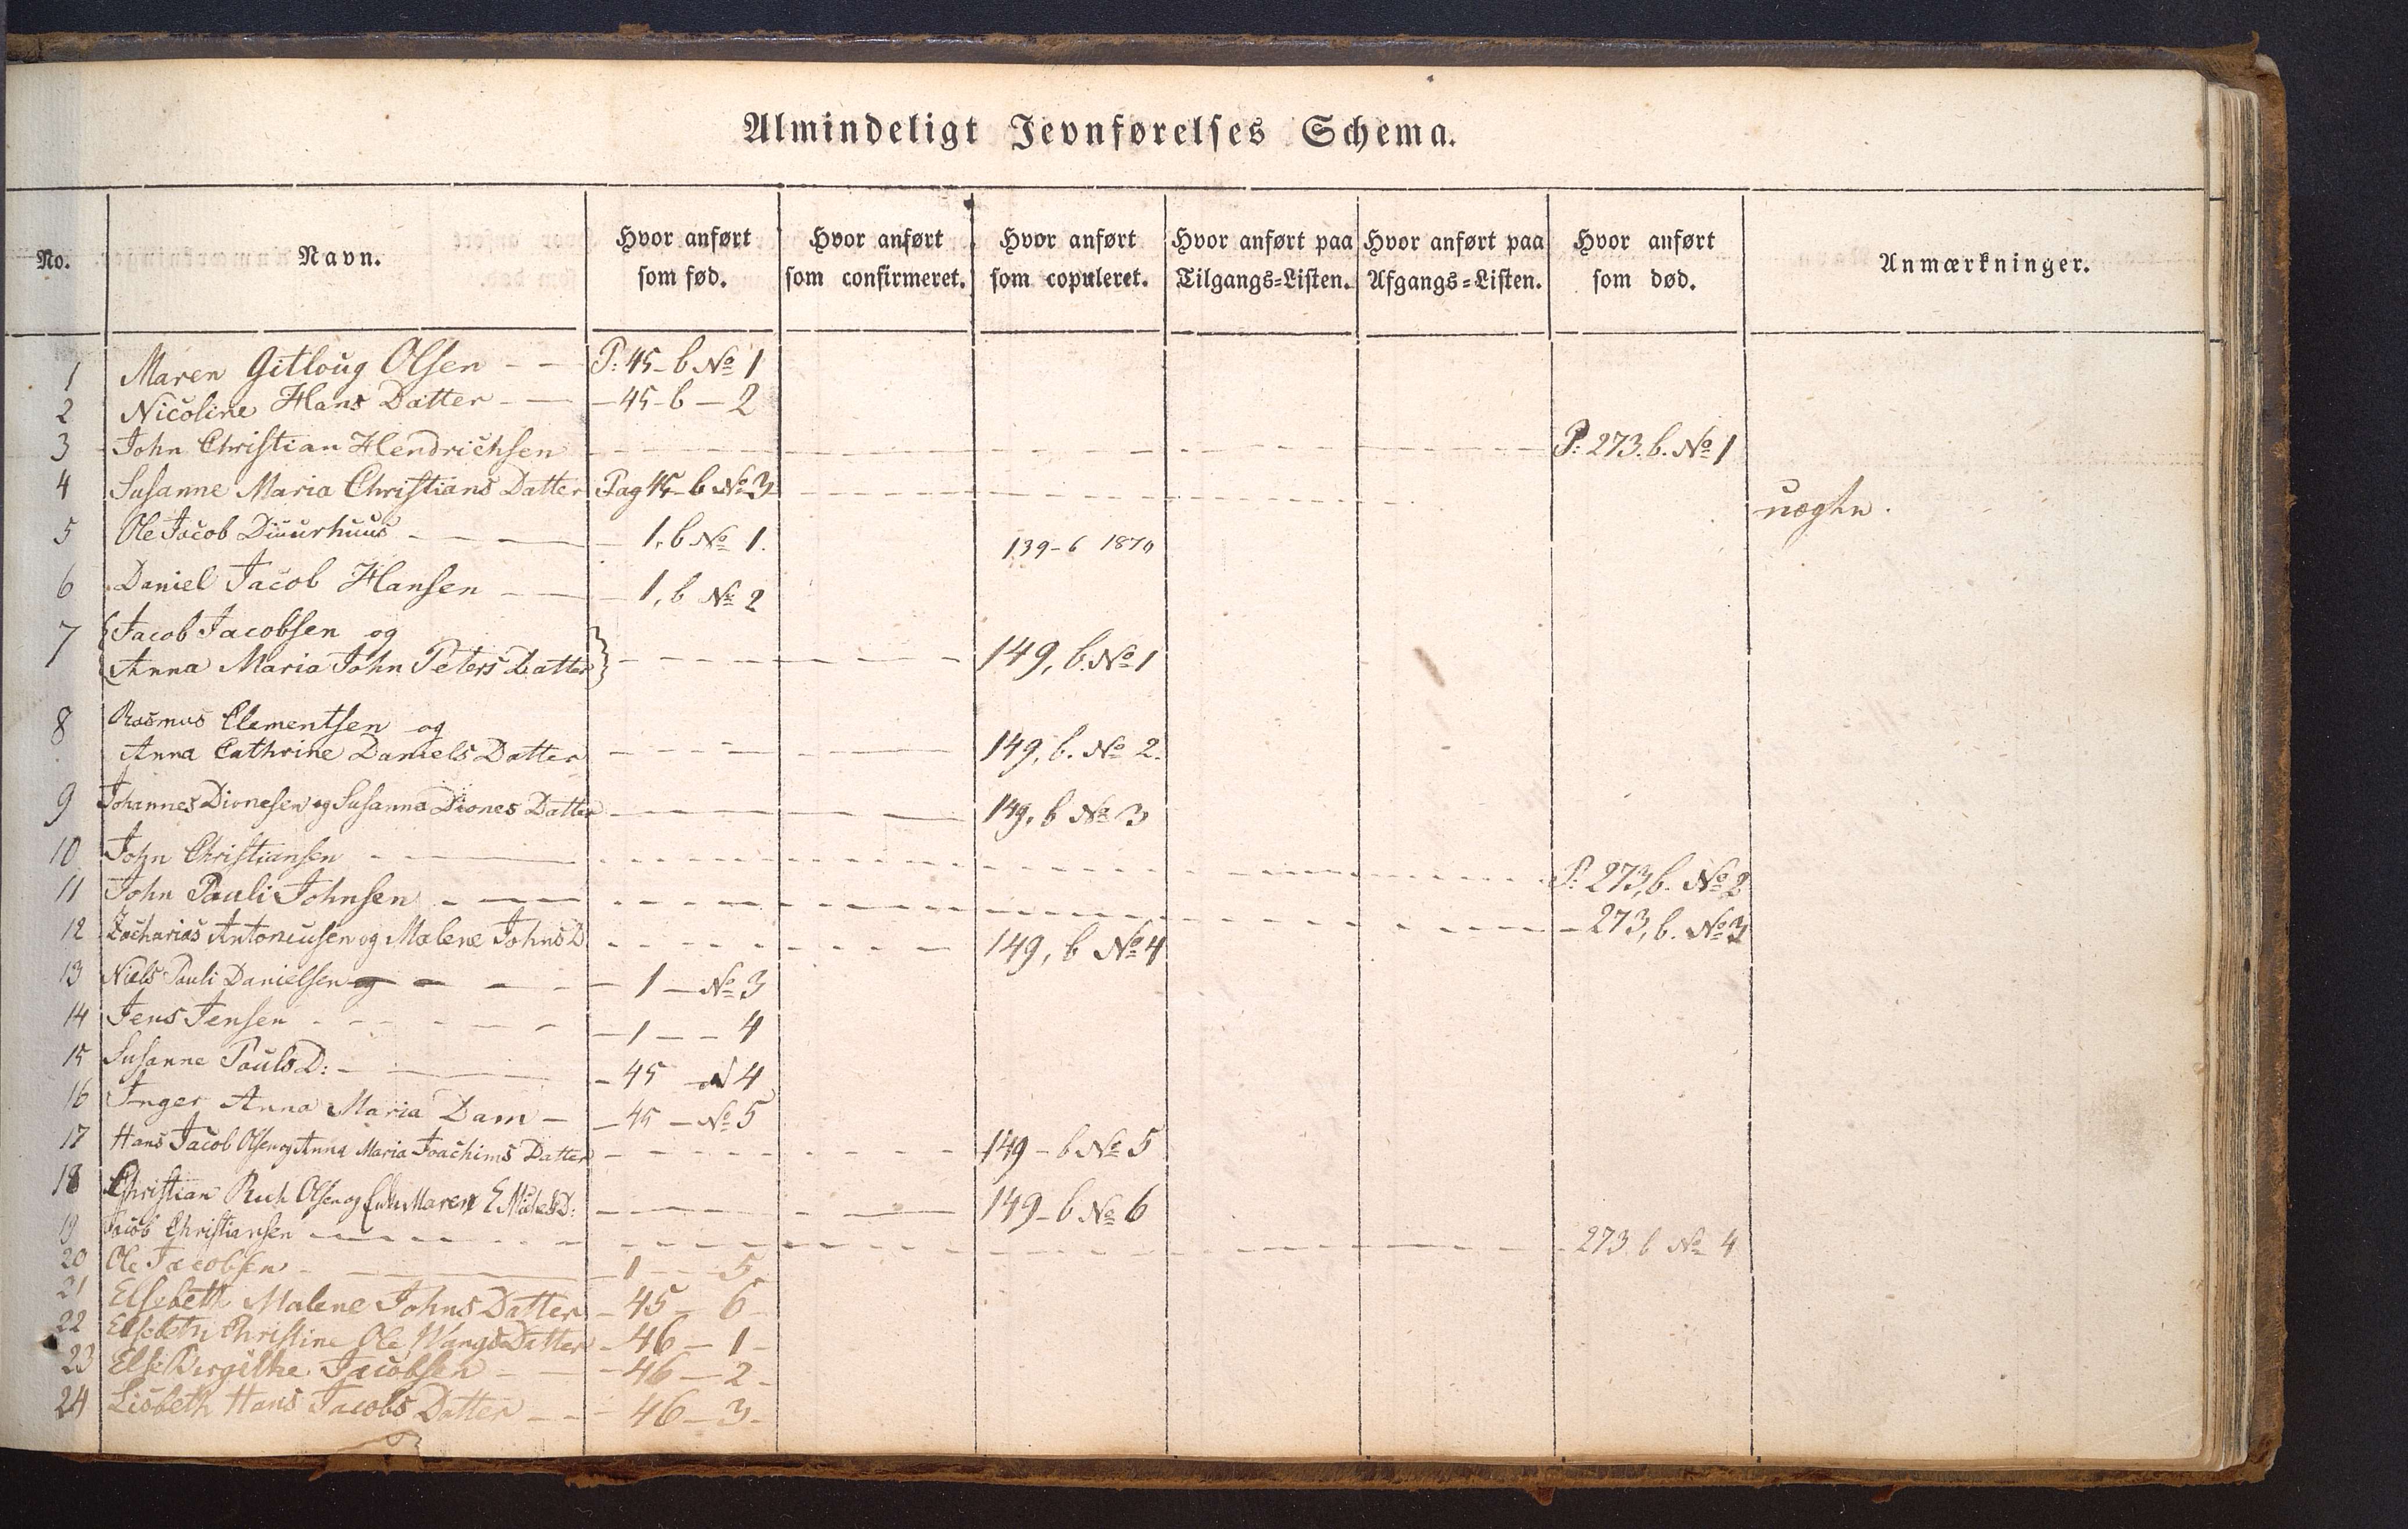 Almindeligt Jevnførelses Schema.
No. Navn. Hvor anført som fød. Hvor anført som confirmeret. Hvor anført som copuleret. Hvor anført paa Tilgangs=Listen. Hvor anført paa Afgangs=Listen. Hvor anført som død. Anmærkninger.
1 Maren Gitloug Olsen - - P: 45-b No 1
2 Nicoline Hans Datter - - - 45-b - 2
3 John Christian Hendrichsen P: 273.b. No 1
4 Susanne Maria Christians Datter Pag 45-b No 3 uægte.
5 Ole Jacob Diuurhuus 1, b No 1. 139-6 1870
6 Daniel Jacob Hansen 1, b No 2
7 Jacob Jacobsen og
Anna Maria John Peters Datter 149, b. No 1
8 Rasmus Clementsen og
Anna Cathrine Daniels Datter 149, b. No 2.
9 Johannes Dionesen og Susanna Diones Datter 149, b No 3
10 John Christiansen P: 273, b. No 2
11 John Pauli Johnsen - 273, b. No 3
12 Zacharias Antoniusen og Malene Johns D 149, b No 4
13 Niels Pauli Danielsen og - 1 - No 3
14 Jens Jensen - 1 - - 4
15 Susanne Pouls D: - - 45 - N 4
16 Inger Anna Maria Dam - - 45 - No 5
17 Hans Jacob Olsen og Anna Maria Joachims Datter 149 - b No 5
18 Christian Olsen og Maren E D: 149 - b No 6
19 Jacob Christiansen 273 b No 4
20 Ole Jacobsen - 1 - - 5
21 Elsebeth Malene Johns Datter - 45 - 6
22 Elsebeth Christine Ole Wangs Datter - 46 - 1 -
23 Else Birgithe Jacobsen - 46 - 2 -
24 Lisbeth Hans Jacobs Datter - - - 46 - 3 -